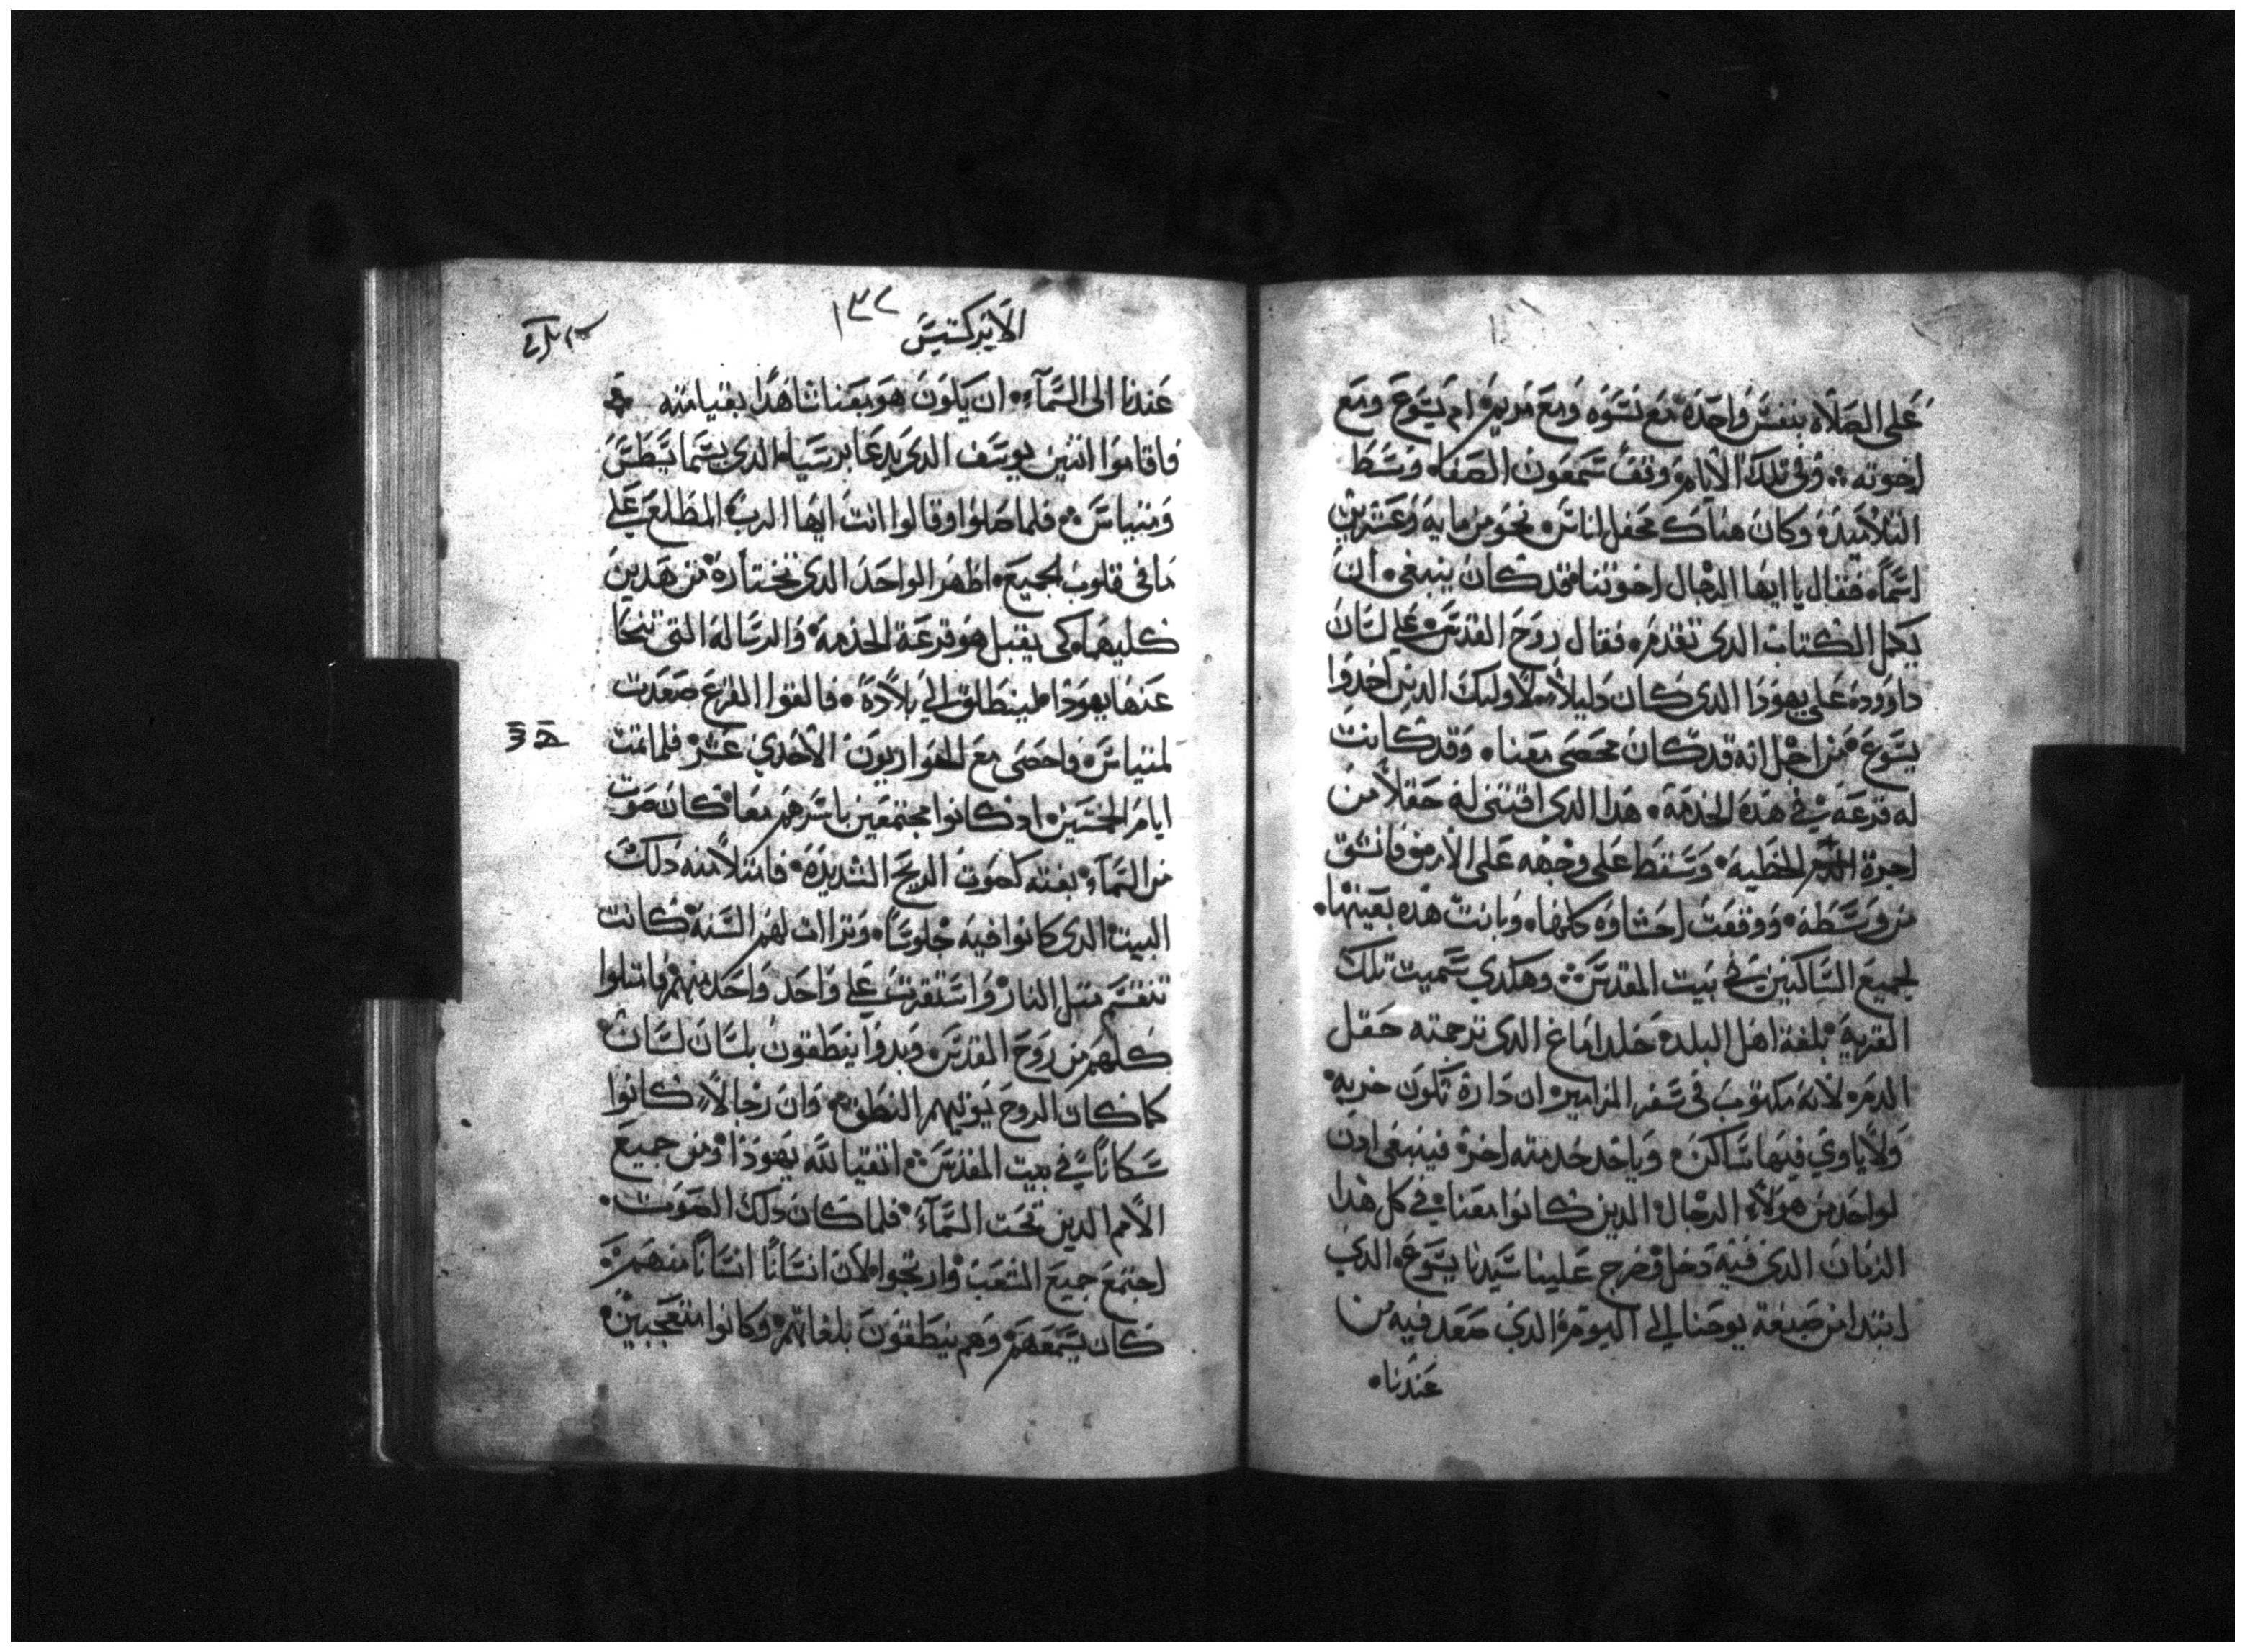 على الصلاه بنفس واحده مع نسوه ومع مريم ام يسوع ومع
اخوته وفي تلك الايام وقف سمعون الصفا وسط
التلاميذ وكان هناك محفل اناس نحو من مايه وعشرين
اسماً فقال يا ايها الرجال اخوتنا قد كان ينبغي ان
يكمل الكتاب الدي تقدم فقال روح القدس على لسان
داوود على يهودا الدي كان دليلاً لاوليك الدين اخدوا
يسوع من اجل انه قد كان محصى معنا وقد كانت
له قرعه في هده الخدمه هدا الدي اقتنى له حقلاً من
اجرة الخطيه وسقط على وجهه على الارض فانشق
من وسطه ووقعت احشاوه كلها وبانت هده بعينها
لجميع الساكنين في بيت المقدس وهكدي سميت تلك
القريه بلغة اهل البلد حقل داماغ الدي ترجمته حقل
الدم لانه مكتوب في سفر المزامير ان داره تكون خربه
ولا ياوي فيها ساكن وياخد خدمته اخر فينبغي ادن
لواحد من هولاء الرجال الدين كانوا معنا في كل هدا
الزمان الدي فيه دخل وخرج علينا سيدنا يسوع الدي
ابتدا من صبغة يوحنا الى اليوم الدي صعد فيه من
عندنا
الابركسيس
١٣٢
عندنا الى السمآء ان يكون هو معنا شاهدا بقيامته
فاقاموا اتنين يوسف الدي يدعا برسيا الدي يسما يسطس
ومتياس فلما صلوا وقالوا انت ايها الرب المطلع على
ما في قلوب الجميع اظهر الواحد الدي تختاره من هدين
كليهما كي يقبل هو قرعة الخدمه والرساله التي تنحا
عنها يهودا لينطلق الى بلاده فالقوا القرع صعدت
لمتياس فاحصى مع الحواريون الاحدي عشر فلما تمت
ايام الخمسين اد كانوا مجتمعين باسرهم معا كان صوت
من السمآء بغته كصوت الريح الشديده فامتلا منه دلك
البيت الدي كانوا فيه جلوسا وتراات لهم السنه كانت
تنقسم متل النار واستقرت على واحد واحد منهم فامتلوا
كلهم من روح القدس وبدوا ينطقون بلسان لسان
كما كان الروح يوتيهم النطق وان رجالاً كانوا
سكاناً في بيت المقدس اتقيا لله يهودا ومن جميع
الامم الدين تحت السمآء فلما كان دلك الصوت
اجتمع جميع الشعب وارتجوا لان انسانًا انسانًا منهم
كان يسمعهم وهم ينطقون بلغاتهم وكانوا متعجبين